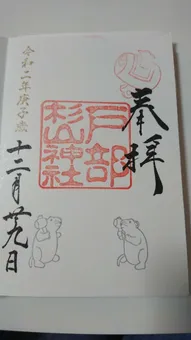 奉拝
戸部
杉山
神社
令和二年庚子歳
十二月廿九日